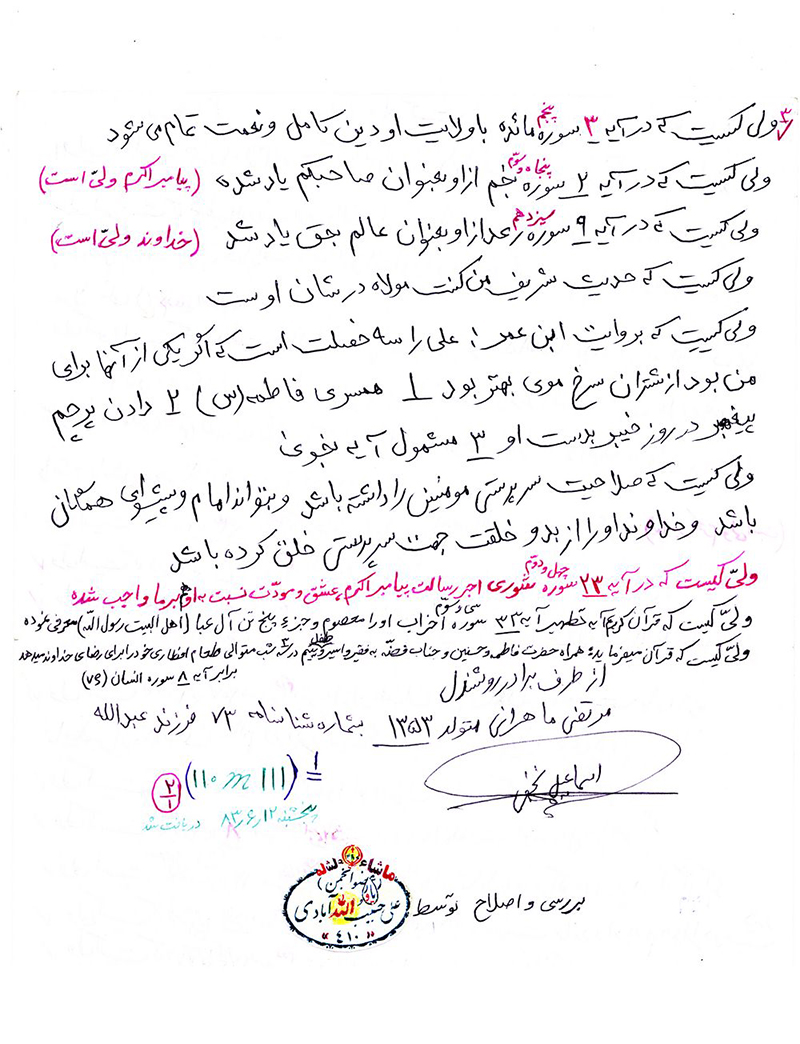 ۳/ ولی کسیست که در آیه ۳ سوره پنجم مائده با ولایت او دین کامل و نعمت تمام می شود
ولی کسیست که در آیه ۲ سوره پنجاه و سوم نجم از او بعنوان صاحبکم یاد شده (پیامبر اکرم ولیّ است)
ولی کسیست که در آیه ۹ سوره سیزدهم رعد از او بعنوان عالم بحق یاد شد (خداوند ولیّ است)
ولی کسیست که حدیث شریف من کنت مولاه در شان اوست
ولی کسیست که بروایت ابن عمر: علی را سه خصلت است که اگر یکی از آنها برای
من بود از شتران سرخ موی بهتر بود ۱ همسری فاطمه (س) ۲ دادن پرچم
پیغمبر در روز خیبر بدست او ۳ مشمول آیه نجوی
ولی کسیست که صلاحیت سرپرستی مومنین را داشته باشد و بتواند امام و پیشوای همگان
باشد و خداوند او را از بدو خلقت جهت سرپرستی خلق کرده باشد
ولیّ کیست که در آیه ۲۳ سوره چهل و دوم شوری اجر رسالت پیامبر اکرم، عشق و مودّت نسبت به او هم بر ما واجب شده
ولیّ کیست که قرآن کریم آیه تطهیر آیه ۳۳ سوره سی و سوم احزاب او را معصوم و جزء پنج تن آل عبا (اهل البیت رسول الله) معرفی نموده
ولیّ کیست که قرآن میفرماید همراه حضرت فاطمه و حسنین و جناب فضّه به فقیر و اسیر و طفل یتیم در ۳ شب متوالی طعام افطاری خود را برای رضای خداوند میدهد
برابر آیه ۸ سوره انسان (۷۶)
از طرف برادر روشندل
مرتضی ماهرانی متولد ۱۳۵۳ بشماره شناسنامه ۷۳ فرزند عبدالله
اسماعیل نجفی
۱ = (۱۱۰ m ۱۱۱) ۲/۱
پنجشنبه ۸۳/۶/۱۲ دریافت شد
ماشاء الله
علی حبیب الله آبادی
«٤١٠»
بررسی و اصلاح توسط